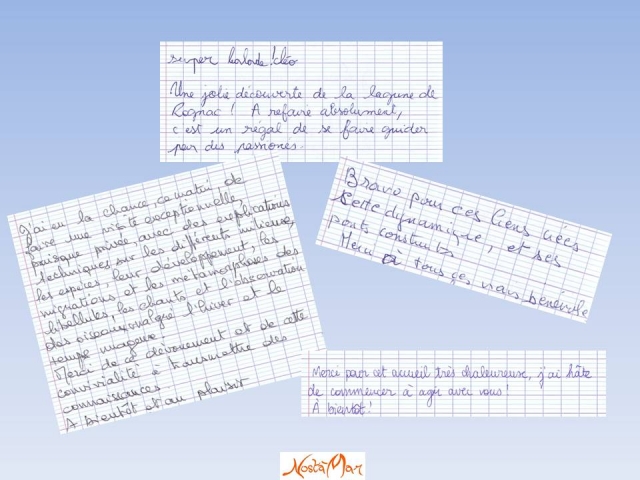 super balade ! Cléo
Une jolie découverte de la lagune de
Rognac ! A refaire absolument,
c'est un régal de se faire guider
par des passionés.
J'ai eu la chance, ce matin de
faire une visite exceptionnelle,
puisque privée, avec des explications
techniques sur les différents milieux,
les espèces, leur développement, les
migrations et les métamorphoses des
libellules, les chants et l'observation
des oiseaux malgré l'hiver et le
temps nuageux.
Merci de ce dévouement et de cette
convivialité à transmettre des
connaissances
A bientôt et au plaisir
Bravo pour ces liens créés
cette dynamique, et ses
ponts construits
Merci à tous ces vrais bénévoles
Merci pour cet accueil très chaleureuse, j'ai hâte
de commencer à agir avec vous !
À bientôt !
NostaMar